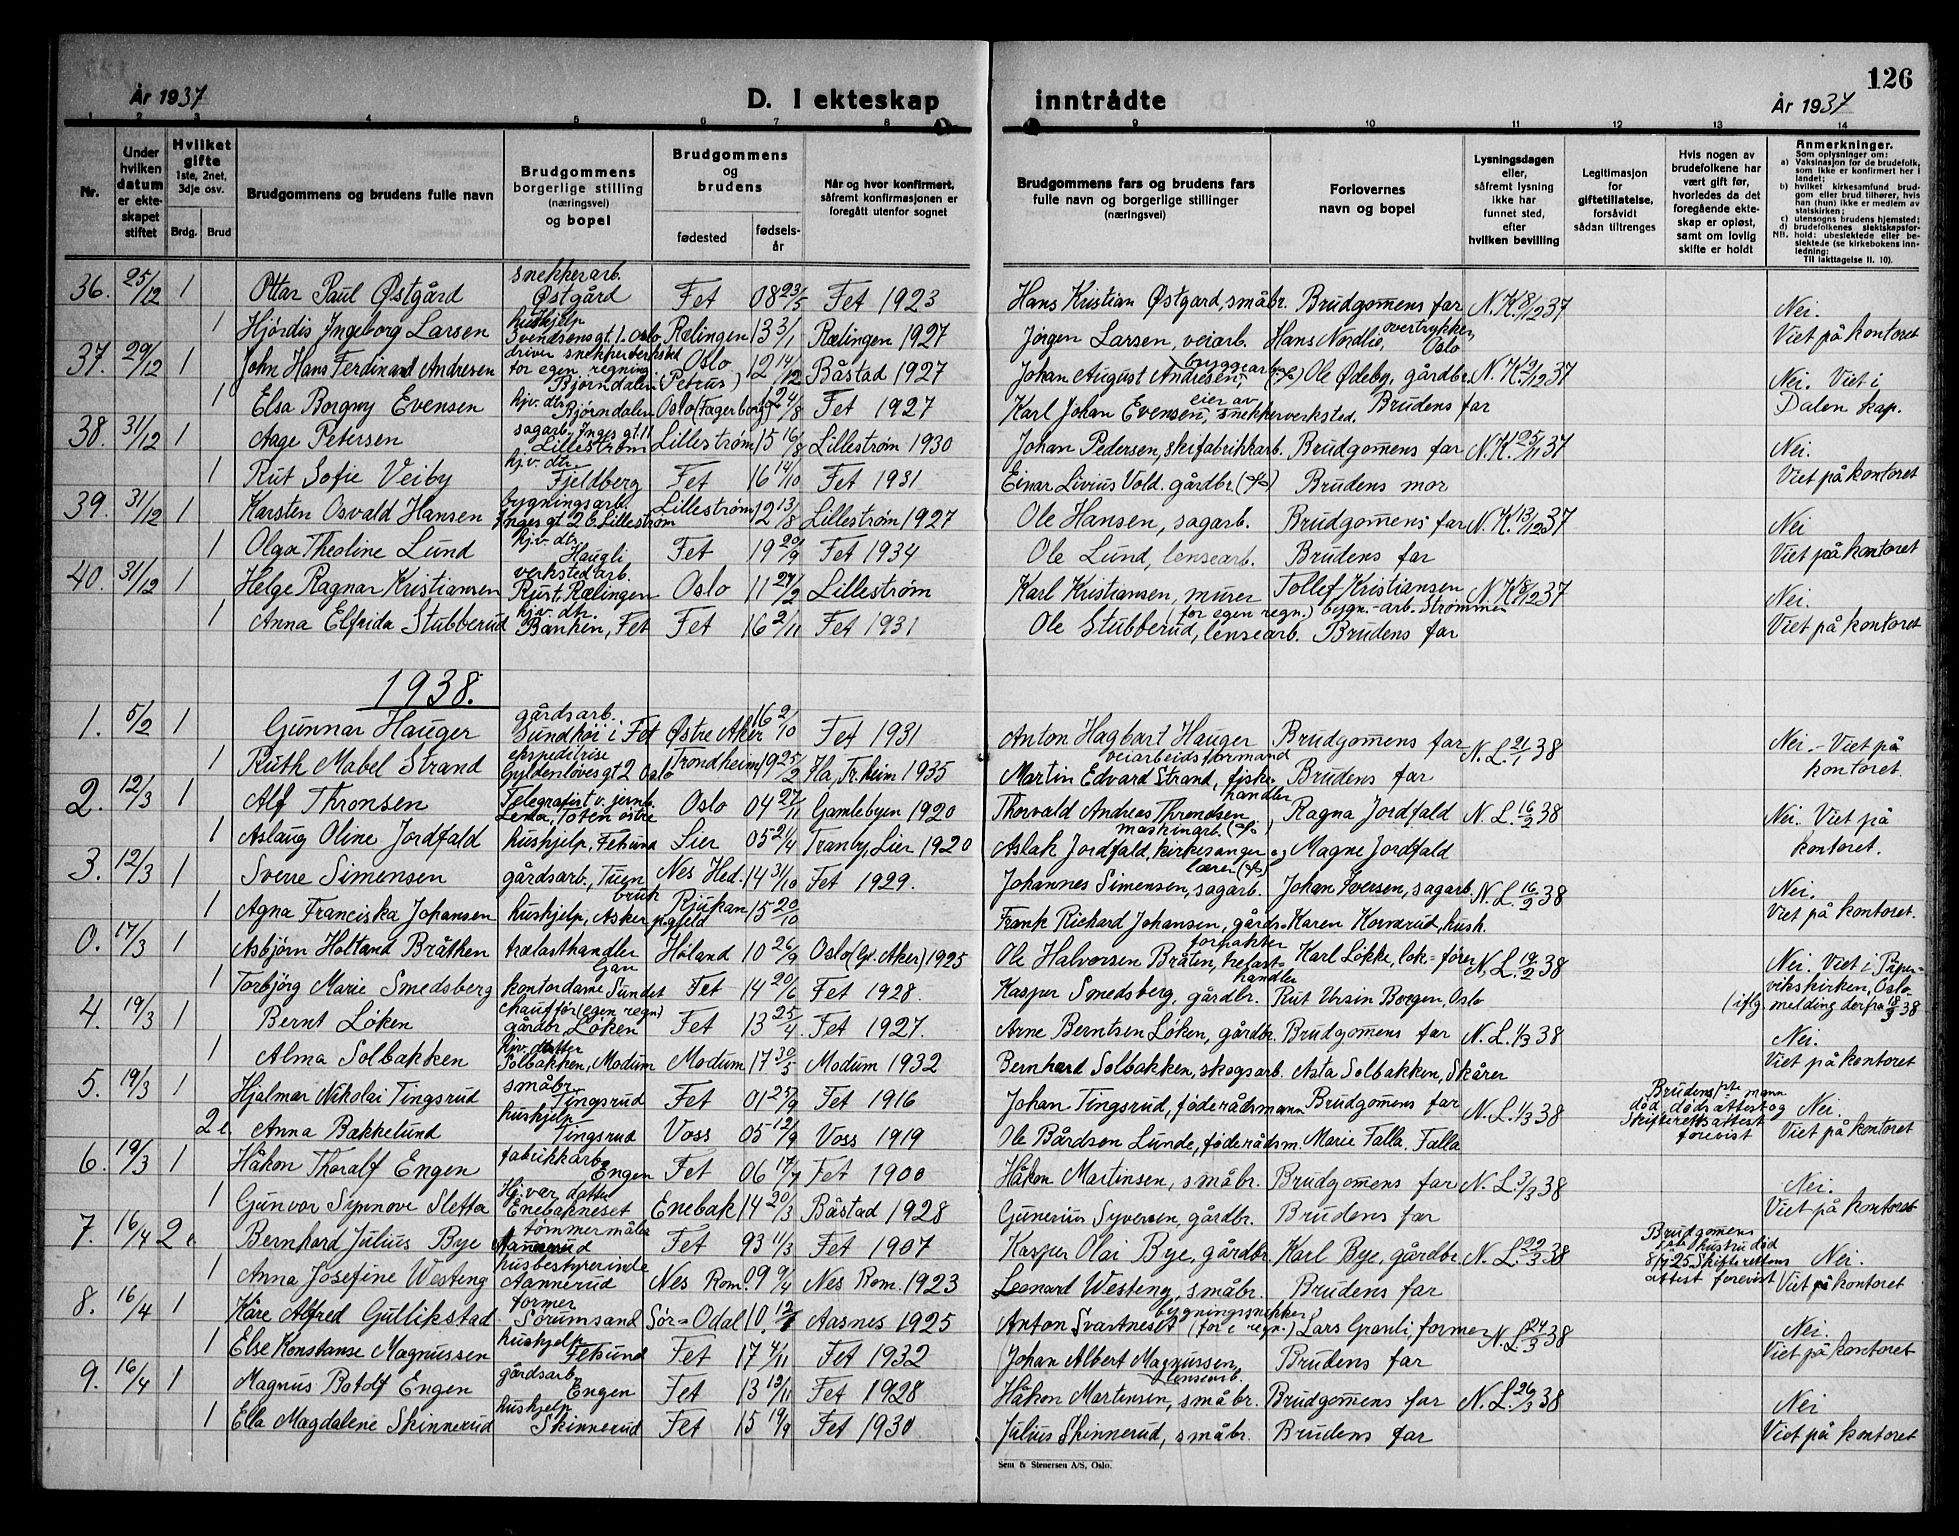 126
År 1937
D. I ekteskap inntrådte
År 1937
1 2 3 4 5 6 7 8 9 10 11 12 13 14
Nr.
Under hvilken datum er ekteskapet stiftet
Hvilket gifte 1ste, 2net, 3dje osv.
Brdg. Brud
Brudgommens og brudens fulle navn
Brudgommens borgerlige stilling (næringsvei) og bopel
Brudgommens og brudens
fødested
fødselsår
Når og hvor konfirmert, såfremt konfirmasjonen er foregått utenfor sognet
Brudgommens fars og brudens fars fulle navn og borgerlige stillinger (næringsvei)
Forlovernes navn og bopel
Lysningsdagen eller, såfremt lysning ikke har funnet sted, efter hvilken bevilling
Legitimasjon for giftetillatelse, forsåvidt sådan tiltrenges
Hvis nogen av brudefolkene har vært gift før, hvorledes da det foregående ekteskap er opløst, samt om lovlig skifte er holdt
Anmerkninger.
Som oplysninger om:
a) Vaksinasjon for de brudefolk, som ikke er konfirmert her i landet;
b) hvilket kirkesamfund brudgom eller brud tilhører, hvis han (hun) ikke er medlem av statskirken;
c) utensogns brudens hjemsted;
d) brudefolkenes slektskapsforhold: ubeslektede eller beslektede (se kirkebokens innledning:
NB. Til iakttagelse II. 10).
36. 25/12 1 Ottar Paul Østgård snekkerarb. Østgård Fet 08 23/5 Fet 1923 Hans Kristian Østgard, småbr. Brudgomens far N.K. 8/12 37 Nei.
1 Hjørdis Ingeborg Larsen hushjelp Svendsensgt. 1. Oslo Rælingen 13 3/1 Rælingen 1927 Jørgen Larsen, veiarb. Hans Nordlie, overtrykker, Oslo Viet på kontoret
37. 29/12 1 John Hans Ferdinand Andresen driver snekkerverksted for egen regning. Bjørndalen Oslo Petrus) 12 14/12 Båstad 1927 Johan August Andresen, byggearb. Ole Ødeby, gårdbr. N.K. 21/12 37 Nei. Viet i
1 Elsa Borgny Evensen hjv. dtr. Bjørndalen Oslo (Fagerborg) 24/8 Fet 1927 Karl Johan Evensen, eier av snekkerverksted. Brudens far Dalen kap.
38. 31/12 1 Aage Petersen sagarb. Inges gt. 11 Lillestrøm Lillestrøm 15 16/8 Lillestrøm 1930 Johan Pedersen, skifabrikkarb. Brudgomens far N.K. 25/11 37 Nei.
1 Rut Sofie Veiby hjv. dtr. Fjeldberg Fet 16 14/10 Fet 1931 Einar Livius Vold. gårdbr. Brudens mor Viet på kontoret
39. 31/12 1 Karsten Osvald Hansen bygningsarb. Inges gt 26 Lillestrøm Lillestrøm 12 13/8 Lillestrøm 1927 Ole Hansen, sagarb. Brudgomens far N.K. 13/12 37 Nei
1 Olga Theoline Lund hjv. dtr. Haugli Fet 19 20/9 Fet 1934 Ole Lund, lensearb. Brudens far Viet på kontoret
40. 31/12 1 Helge Ragnar Kristiansen verkstedarb. Rjust, Rælingen Oslo 11 27/2 Lillestrøm Karl Kristiansen, murer (for egen regn.) Tollef Kristiansen bygn.-arb. Strømmen N.K. 18/12 37 Nei.
1 Anna Elfrida Stubberud hjv. dtr. Banken, Fet Fet 16 2/11 Fet 1931 Ole Stubberud, lensearb. Brudens far Viet på kontoret
1938.
1. 5/2 1 Gunnar Hauger gårdsarb. Sundhøi i Fet Østre Aker 16 2/10 Fet 1931 Anton Hagbart Hauger veiarbeidsformand Brudgomens far N.L. 21/1 38 Nei. - Viet på
1 Ruth Mabel Strand ekspeditrise Gyldenløvesgt 2 Oslo Trondheim 19 25/2 Ila, Tr.heim 1935 Martin Edvard Strand, fiskehandler Brudens far kontoret.
2. 12/3 1 Alf Thronsen Telegrafist v. jernb. Lena, Toten østre Oslo 04 27/11 Gamlebyen 1920 Thorvald Andreas Throndsen maskinarb. Ragna Jordfald N.L. 16/2 38 Nei. Viet på
1 Aslaug Oline Jordfald hushjelp, Fetsund Lier 05 24/4 Tranby, Lier 1920 Aslak Jordfald, kirkesanger og lærer Magne Jordfald kontoret.
3. 12/3 1 Sverre Simensen gårdsarb, Tuen bruk Nes Hed. 14 31/10 Fet 1929. Johannes Simensen, sagarb. Johan Iversen, sagarb. N.L. 16/2 38 Nei.
1 Agna Franciska Johansen hushjelp, Asker p.gjeld Rjukan 15 20/10 Frank Richard Johansen, gårdsforpakter Karen Korværud, hush. Viet på kontoret.
0. 17/3 1 Asbjørn Holtand Bråthen trælasthandler Gan Høland 10 26/9 Oslo (Gr. Aker) 1925 Ole Halvorsen Bråten, trelasthandler Karl Løkke, lok=fører N.L. 19/2 38 Nei. Viet i Piper-
1 Torbjørg Marie Smedsberg kontordame Sundet Fet 14 20/6 Fet 1928. Kasper Smedsberg, gårdbr. Rut Ursin Borgen, Oslo vikskirken, Oslo (iflg. melding derfra 18/3 38
4. 19/3 1 Bernt Løken chauffør (egen regn) gårdbr. Løken Fet 13 25/4 Fet 1927. Arne Berntsen Løken, gårdbr. Brudgomens far N.L. 1/3 38 Nei.
1 Alma Solbakken hjv. datter Solbakken, Modum Modum 17 30/5 Modum 1932 Bernhard Solbakken, skogsarb. Asta Solbakken, Skårer Viet på kontoret
5. 19/3 1 Hjalmar Nikolai Tingsrud småbr. Tingsrud Fet 01 25/9 Fet 1916 Johan Tingsrud, føderådsmann Brudgomens far N.L. 1/3 38 Brudens 1ste mann død, dødsattest og skifterettsattest forevist Nei.
2. Anna Bakkelund hushjelp Tingsrud Voss 05 12/9 Voss 1919 Ole Bårdsen Lunde, føderådsm. Marie Falla. Falla Viet på kontoret
6. 19/3 1 Håkon Thoralf Engen fabrikkarb Engen Fet 06 17/7 Fet 1900 Håkon Martinsen, småbr. Brudgomens far N.L. 3/3 38 Nei.
1 Gunvor Synnøve Sletta Hjv. datter Enebakneset Enebak 14 20/3 Båstad 1928 Gunerius Syversen, gårdbr. Brudens far Viet på kontoret
7. 16/4 2 Bernhard Julius Bye tømmermåler Aannerud Fet 93 11/3 Fet 1907 Kasper Olai Bye, gårdbr. Karl Bye, gårdbr N.L. 22/3 38 Brudgomens 1ste hustru død 8/9 25 Skifterettens attest forevist Nei.
1 Anna Josefine Westeng husbestyrerinde Aannerud Nes Rom. 09 9/4 Nes Rom. 1923 Leonard Westeng, småbr. Brudens far Viet på kontoret
8. 16/4 1 Kåre Alfred Gullikstad former Sørumsand Sør=Odal 10. Aasnes 1925 Anton Svartneset bygningssnekker (for e regn.) Lars Granli, former N.L. 24/3 38 Nei.
1 Else Konstanse Magnussen hushjelp Fetsund Fet 17 4/11 Fet 1932 Johan Albert Magnussen lensearb. Brudens far Viet på kontoret
9. 16/4 1 Magnus Botolf Engen gårdsarb. Engen Fet 13 12/11 Fet 1928 Håkon Martinsen, småbr. Brudgomens far N.L. 26/3 38 Nei
1 Ella Magdalene Skinnerud hushjelp Skinnerud Fet 15 19/9 Fet 1930 Julius Skinnerud, småbr. Brudens far Viet på kontoret
Sem & Stenersen A/S, Oslo.